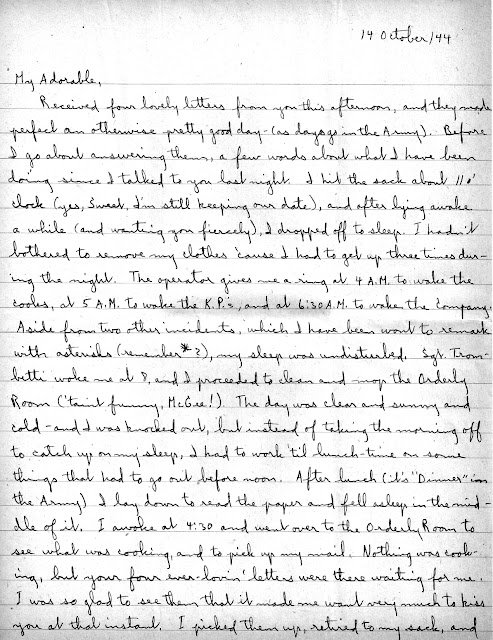 14 October/44
My Adorable,
Received four lovely letters from you this afternoon, and they made
perfect an otherwise pretty good day - (as days go in the Army). Before
I go about answering them, a few words about what I have been
doing since I talked to you last night. I hit the sack about 11 o'
clock (yes, Sweet, I'm still keeping our date), and after lying awake
a while (and wanting you fiercely), I dropped off to sleep. I hadn't
bothered to remove my clothes 'cause I had to get up three times dur-
ing the night. The operator gives me a ring at 4 A.M. to wake the
cooks, at 5 A.M. to wake the K.P.'s, and at 6:30 A.M. to wake the Company.
Aside from two other incidents, which I have been wont to remark
with asterisks (remember * ?), my sleep was undisturbed. Sgt. Trom-
betti woke me at 8, and I proceeded to clean and mop the Orderly
Room ('taint funny, McGee!) The day was clear and sunny and
cold - and I was knocked out, but instead of taking the morning off
to catch up on my sleep, I had to work 'til lunch-time on some
things that had to go out before noon. After lunch (it's "Dinner" in
the Army) I lay down to read the paper and fell asleep in the mid-
dle of it. I awoke at 4:30 and went over to the Orderly Room to
see what was cooking, and to pick up my mail. Nothing was cook-
ing, but your four ever-lovin' letters were there waiting for me.
I was so glad to see them that it made me want very much to kiss
you at that instant. I picked them up, retired to my sack, and